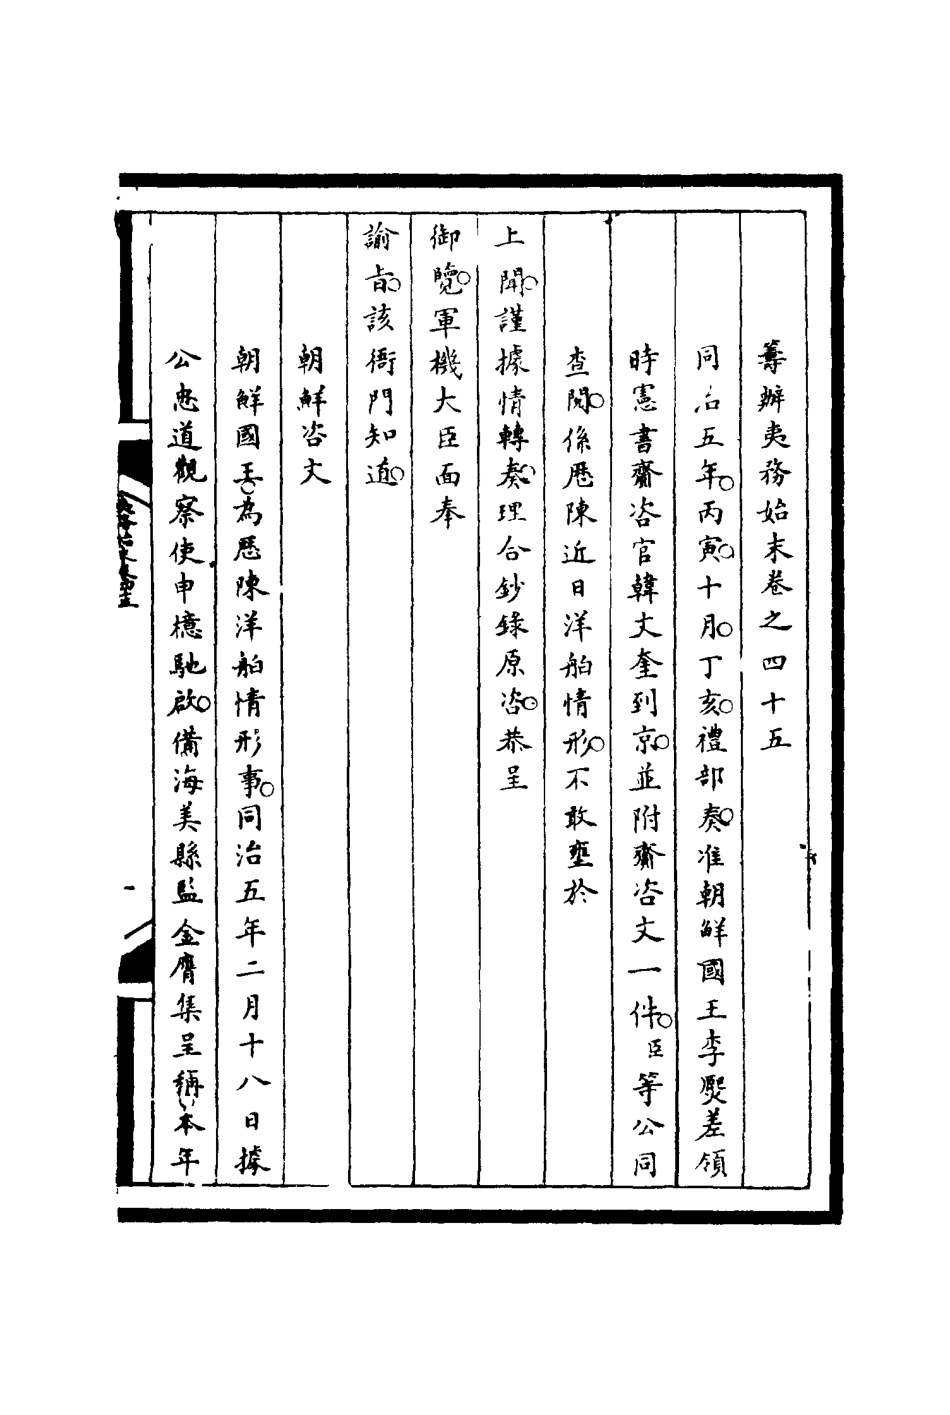 籌辦夷務始末卷之四十五
同治五年。丙寅。十月。丁亥。禮部奏。准朝鮮國王李熙差領
時憲書齎咨官韓文奎到京。並附齎咨文一件。臣等公同
查閱。係歷陳近日洋舶情形。不敢壅於
上聞。謹據情轉奏。理合鈔錄原咨。恭呈
御覽。軍機大臣面奉
諭旨。該衙門知道。
朝鮮咨文
朝鮮國王。為歷陳洋舶情形事。同治五年二月十八日據
公忠道觀察使申檍馳啟。備海美縣監金膺集呈稱、本年